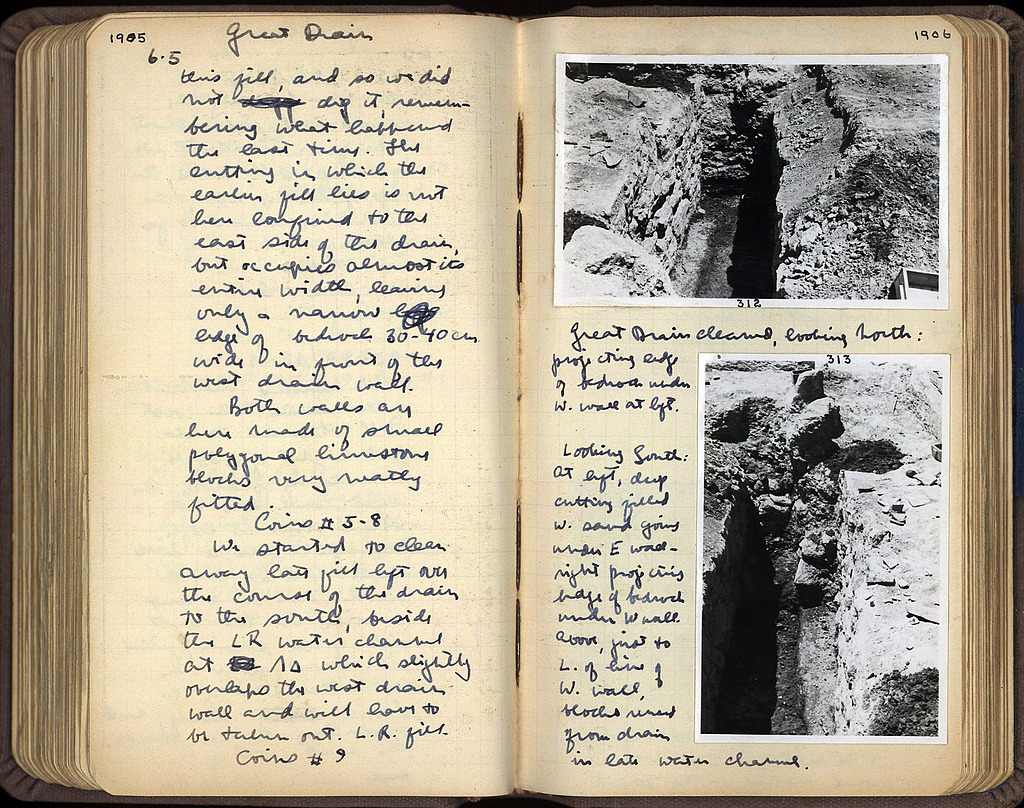 1905
Great Drain
6.5
this fill, and so we did
not dig it, remem-
bering what happened
the last time. The
cutting in which the
earlier fill lies is not
here confined to the
east side of the drain,
but occupies almost its
entire width, leaving
only a narrow
ledge of bedrock 30-40 cm
wide in front of the
west drain wall.
Both walls are
here made of small
polygonal limestone
blocks very neatly
fitted.
Coins # 5-8
We started to clean
away late fill left over
the course of the drain
to the south, beside
the LR water channel
at ΛΔ which slightly
overlaps the west drain
wall and will have to
be taken out. L.R. fill.
Coins # 9
1906
312
Great Drain cleared, looking North:
projecting ledge
of bedrock under
W. wall at left.
313
Looking South:
At left, deep
cutting filled
w. sand going
under E wall-
right projecting
ledge of bedrock
under W wall.
Above, just to
L. of line of
W. wall,
blocks reused
from drain
in late water channel.